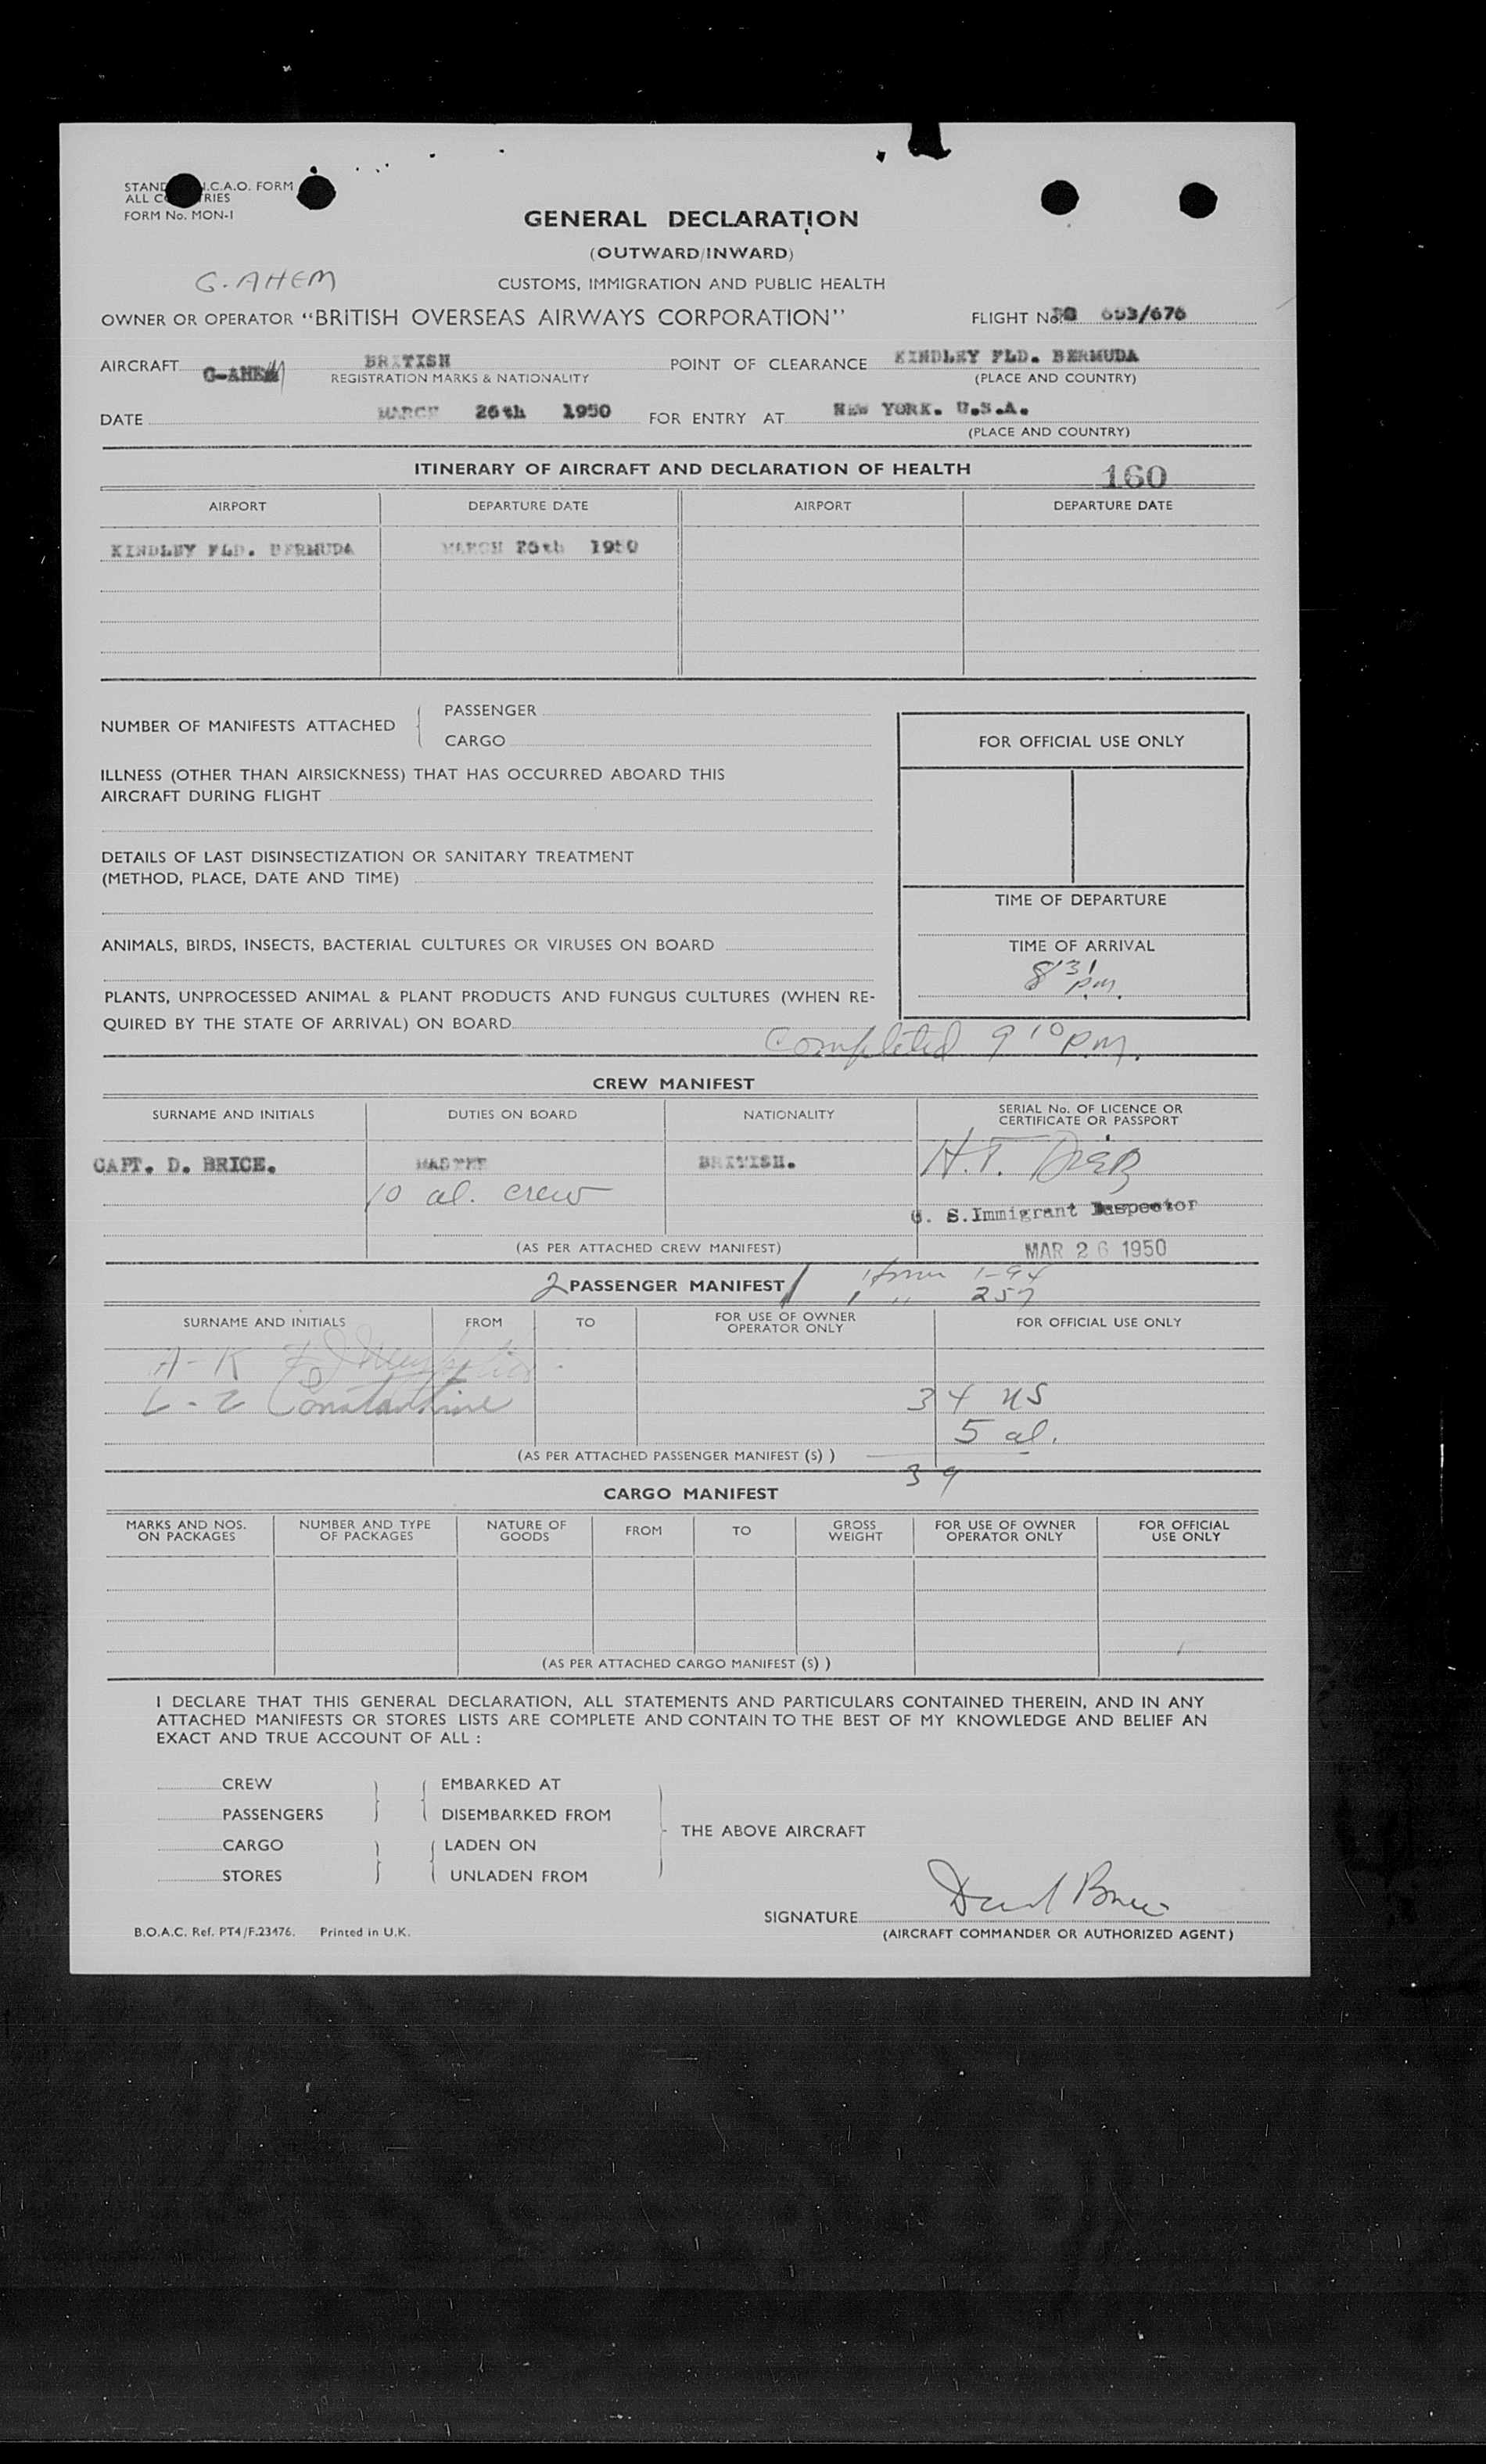 STAND I.C.A.O. FORM
ALL COUNTRIES
FORM No. MON-1
GENERAL DECLARATION
(OUTWARD/INWARD)
G.AHEM
CUSTOMS, IMMIGRATION AND PUBLIC HEALTH
OWNER OR OPERATOR "BRITISH OVERSEAS AIRWAYS CORPORATION" FLIGHT No. 653/676
AIRCRAFT G-AHEM BRITISH POINT OF CLEARANCE KINDLEY FLD. BERMUDA
REGISTRATION MARKS & NATIONALITY (PLACE AND COUNTRY)
DATE MARCH 26th 1950 FOR ENTRY AT NEW YORK. U.S.A.
(PLACE AND COUNTRY)
ITINERARY OF AIRCRAFT AND DECLARATION OF HEALTH 160
AIRPORT DEPARTURE DATE AIRPORT DEPARTURE DATE
KINDLEY FLD. BERMUDA MARCH 26th 1950
NUMBER OF MANIFESTS ATTACHED
PASSENGER
CARGO
FOR OFFICIAL USE ONLY
ILLNESS (OTHER THAN AIRSICKNESS) THAT HAS OCCURRED ABOARD THIS
AIRCRAFT DURING FLIGHT
DETAILS OF LAST DISINSECTIZATION OR SANITARY TREATMENT
(METHOD, PLACE, DATE AND TIME)
TIME OF DEPARTURE
ANIMALS, BIRDS, INSECTS, BACTERIAL CULTURES OR VIRUSES ON BOARD
TIME OF ARRIVAL
8 31 pm.
PLANTS, UNPROCESSED ANIMAL & PLANT PRODUCTS AND FUNGUS CULTURES (WHEN RE-
QUIRED BY THE STATE OF ARRIVAL) ON BOARD
Completed 9 10 p.m.
CREW MANIFEST
SURNAME AND INITIALS DUTIES ON BOARD NATIONALITY SERIAL No. OF LICENCE OR
CERTIFICATE OR PASSPORT
CAPT. D. BRICE. MASTER BRITISH. H.T.
10 al. crew
U. S. Immigrant Inspector
(AS PER ATTACHED CREW MANIFEST) MAR 26 1950
2 PASSENGER MANIFEST 1 form 1-94
1 " 257
SURNAME AND INITIALS FROM TO FOR USE OF OWNER
OPERATOR ONLY FOR OFFICIAL USE ONLY
A-K
L-Z Constantine 34 US
5 al.
(AS PER ATTACHED PASSENGER MANIFEST (S) )
39
CARGO MANIFEST
MARKS AND NOS.
ON PACKAGES NUMBER AND TYPE
OF PACKAGES NATURE OF
GOODS FROM TO GROSS
WEIGHT FOR USE OF OWNER
OPERATOR ONLY FOR OFFICIAL
USE ONLY
(AS PER ATTACHED CARGO MANIFEST (S) )
I DECLARE THAT THIS GENERAL DECLARATION, ALL STATEMENTS AND PARTICULARS CONTAINED THEREIN, AND IN ANY
ATTACHED MANIFESTS OR STORES LISTS ARE COMPLETE AND CONTAIN TO THE BEST OF MY KNOWLEDGE AND BELIEF AN
EXACT AND TRUE ACCOUNT OF ALL :
CREW EMBARKED AT
PASSENGERS DISEMBARKED FROM
THE ABOVE AIRCRAFT
CARGO LADEN ON
STORES UNLADEN FROM
SIGNATURE David Brice
B.O.A.C. Ref. PT4/F.23476. Printed in U.K. (AIRCRAFT COMMANDER OR AUTHORIZED AGENT)